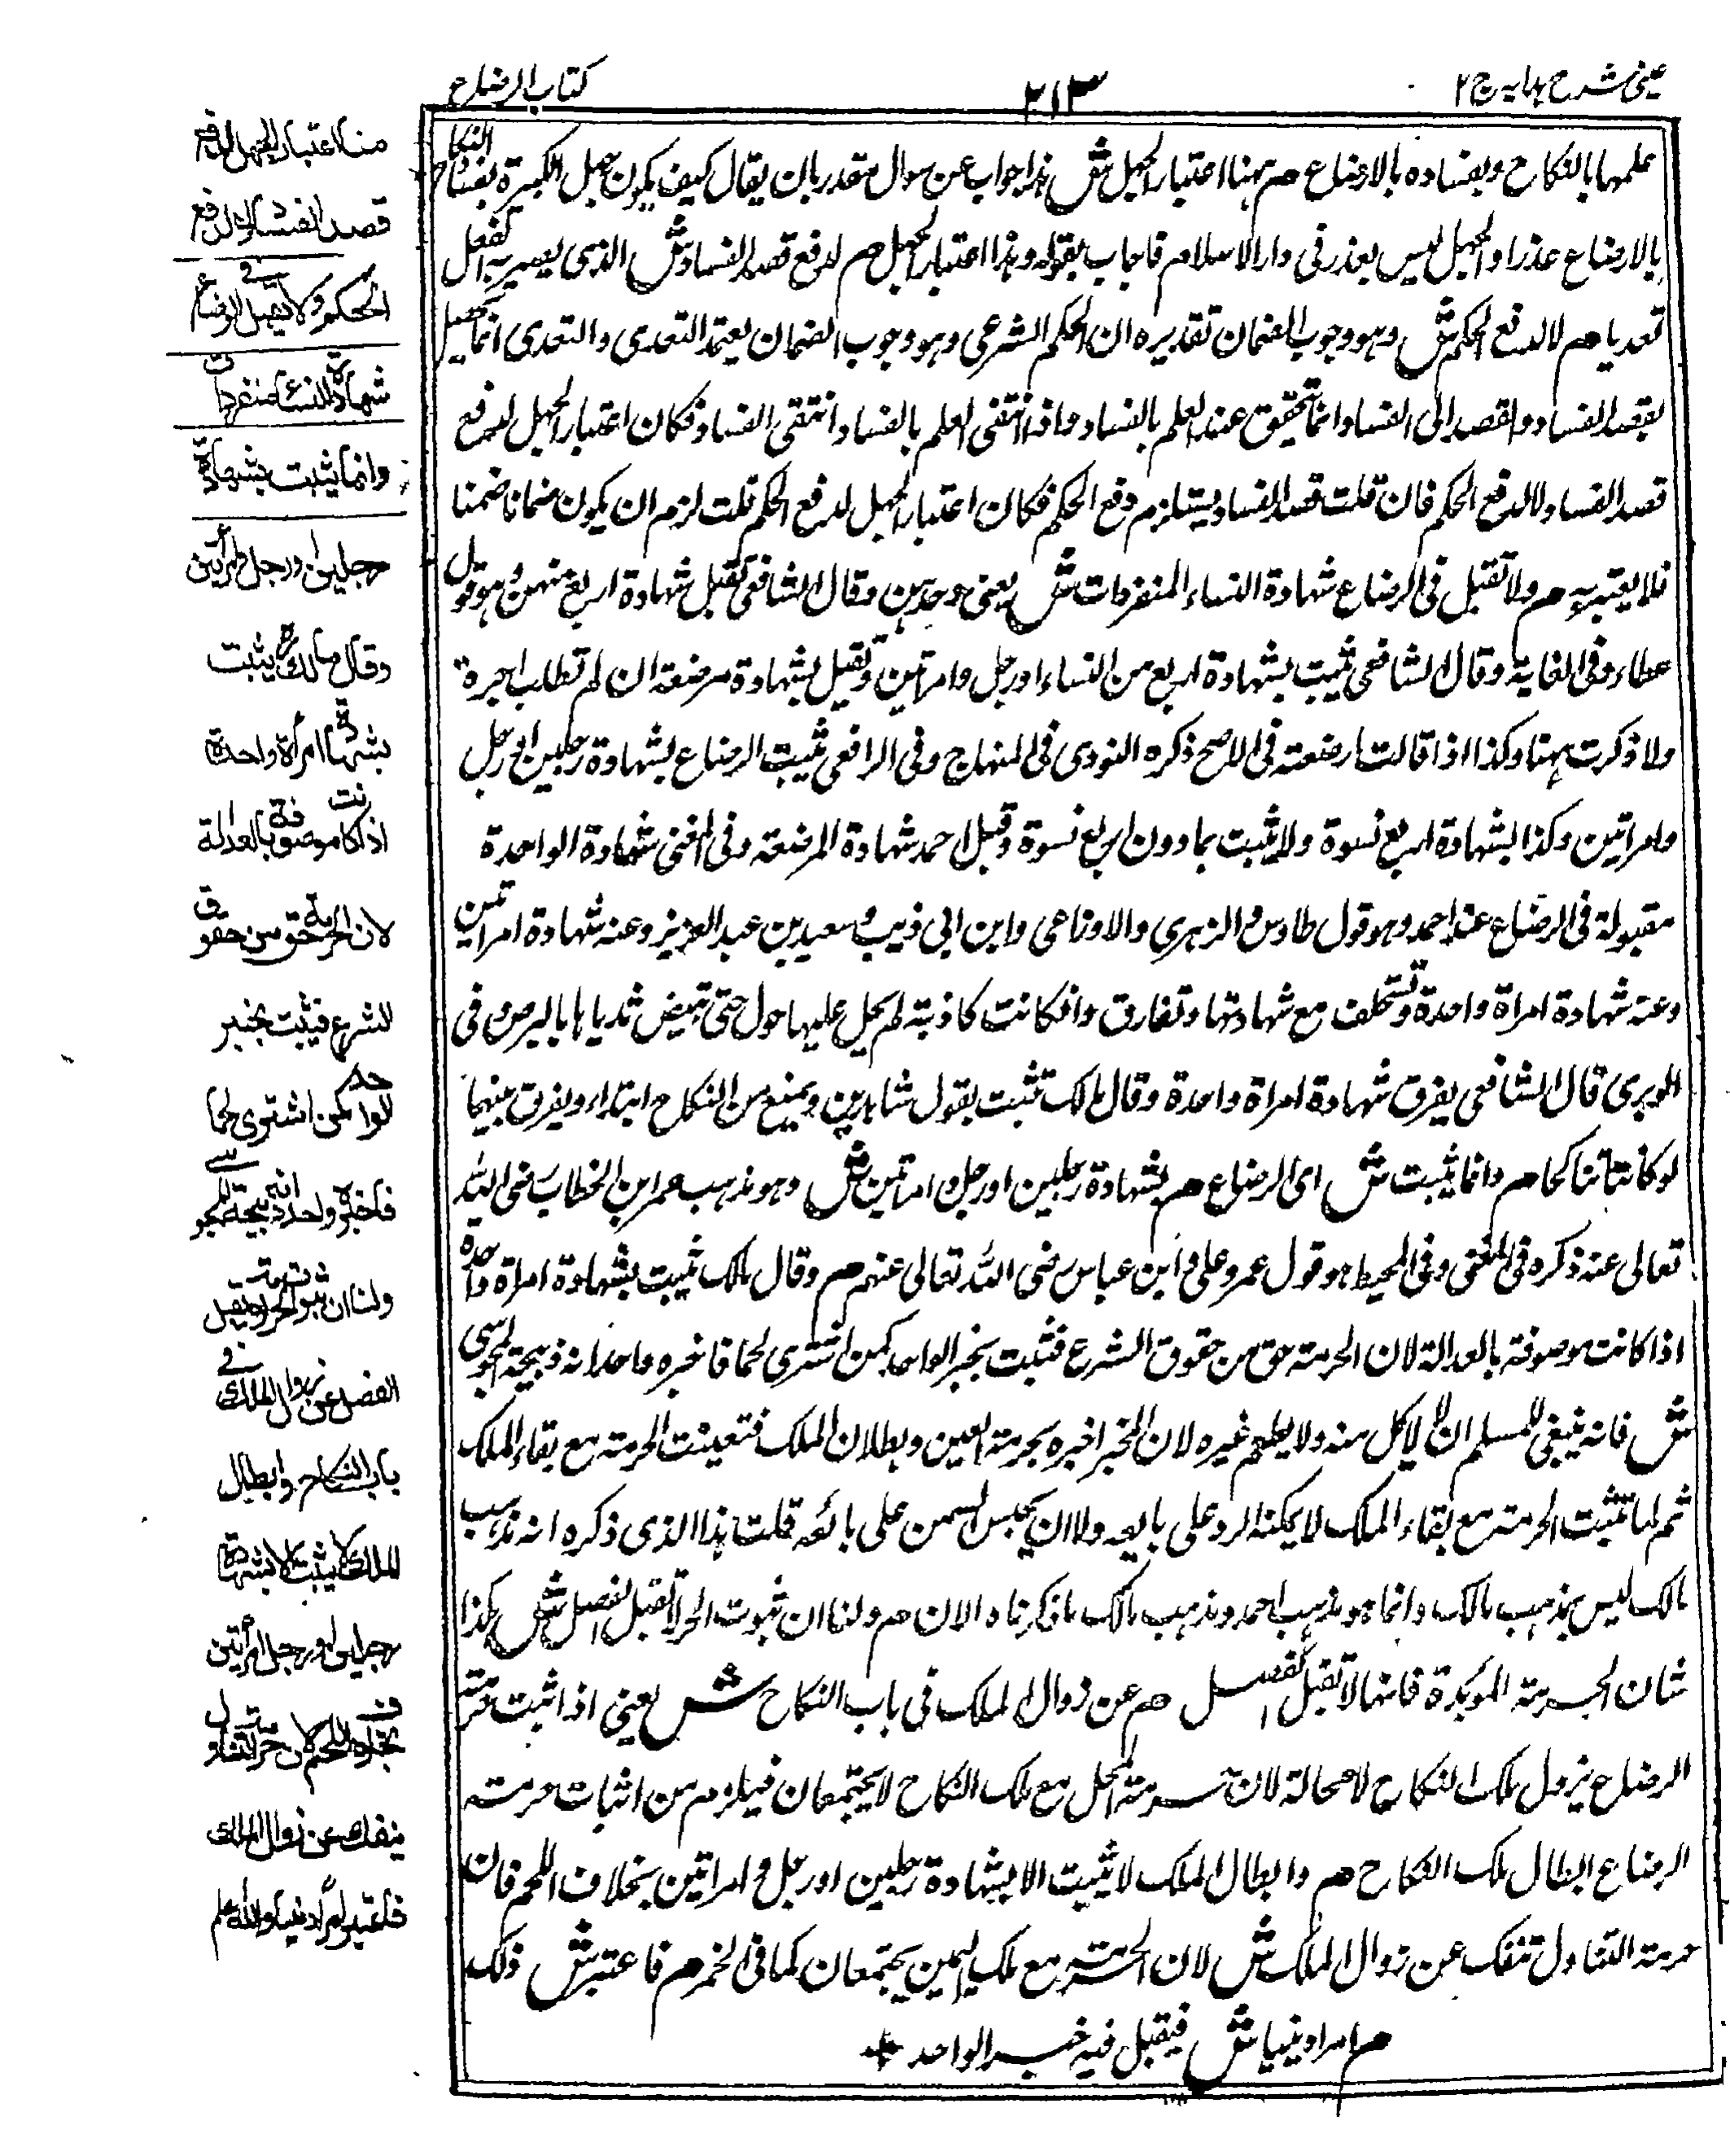 عینی شرح ہدایہ ج ۲
۲۱۳
کتاب الرضاع
علمها بالنكاح وبفساده بالارضاع هم ههنا اعتبار الجهل ش هذا جواب عن سوال مقدر بان يقال كيف يكون جهل الكبيرة بفساد النكاح
بالارضاع عذرا والجهل ليس بعذر فى دار الاسلام فاجاب بقوله وهذا اعتبار الجهل هم لدفع قصد الفساد ش الذى يصير به الفعل
تعديا هم لا لدفع الحكم ش وهو وجوب الضمان تقديره ان الحكم الشرعى وهو وجوب الضمان يعتمد التعدى والتعدى انما يحصل
بقصد الفساد والقصد الى الفساد انما يتحقق عند العلم بالفساد واذا انتفى العلم بالفساد انتفى الفساد فكان اعتبار الجهل لدفع
قصد الفساد لا لدفع الحكم فان قلت قصد الفساد يستلزم دفع الحكم فكان اعتبار الجهل لدفع الحكم قلت لزم ان يكون ضمانا ضمنا
فلا يعتبر به هم ولا تقبل فى الرضاع شهادة النساء المنفردات ش يعنى وحدهن وقال الشافعى تقبل شهادة اربع منهن وهو قول
عطاء وفى الغاية وقال الشافعى يثبت بشهادة اربع من النساء او رجل وامراتين وتقبل بشهادة مرضعة ان لم تطلب اجرة
ولا ذكرت ههنا وكذا اذا قالت ارضعته فى الاصح ذكره النووى فى المنهاج وفى الرافعى يثبت الرضاع بشهادة رجلين او رجل
وامراتين وكذا بشهادة اربع نسوة ولا يثبت بما دون اربع نسوة وقبل احمد شهادة المرضعة وفى المغنى شهادة الواحدة
مقبولة فى الرضاع عند احمد وهو قول طاوس والزهرى والاوزاعى وابن ابى ذيب وسعيد بن عبد العزيز وعنه شهادة امراتين
وعنه شهادة امراة واحدة وتستحلف مع شهادتها وتفارق وان كانت كاذبة لم يحل عليها حول حتى تبيض ثدياها بالبرص وفى
الوبرى قال الشافعى يفرق شهادة امراة واحدة وقال مالك تثبت بقول شاهدين ويمنع من النكاح ابتداء ويفرق بينهما
لو كانتا تناكحا هم وانما يثبت ش اى الرضاع هم بشهادة رجلين او رجل وامراتين ش وهو مذهب عمر ابن الخطاب رضى الله
تعالى عنه ذكره فى المغنى وفى المحيط هو قول عمر وعلى وابن عباس رضى الله تعالى عنهم هم وقال مالك يثبت بشهادة امراة واحدة
اذا كانت موصوفة بالعدالة لان الحرمة حق من حقوق الشرع فتثبت بخبر الواحد كمن اشترى لحما فاخبره واحد انه ذبيحة المجوسى
ش فانه ينبغى للمسلم ان لا ياكل منه ولا يطعم غيره لان المخبر اخبره بحرمة العين وبطلان الملك فتعينت الحرمة مع بقاء الملك
ثم لما تثبت الحرمة مع بقاء الملك لا يمكنه الرد على بايعه ولا ان يحبس الثمن على بائعه قلت هذا الذى ذكره انه مذهب
مالك ليس بمذهب مالك وانما هو مذهب احمد ومذهب مالك ما ذكرناه الان هم ولنا ان ثبوت الحرمة لا تقبل الفصل ش هكذا
شان الحرمة المؤبدة فانها لا تقبل الفصل هم عن زوال الملك فى باب النكاح ش يعنى اذا ثبت حرمة
الرضاع يزول ملك النكاح لا محالة لان حرمة المحل مع ملك النكاح لا يجتمعان فيلزم من اثبات حرمة
الرضاع ابطال ملك النكاح هم وابطال الملك لا يثبت الا بشهادة رجلين او رجل وامراتين بخلاف اللحم فان
حرمة التناول تنفك عن زوال الملك ش لان الحرمة مع ملك اليمين يجتمعان كما فى الخمر هم فاعتبر ش ذلك
هم امرا دينيا ش فيقبل فيه خبر الواحد
منا اعتبار الجهل لدفع
قصد الفساد لا لدفع
الحكم ولا يقبل فى الرضاع
شهادة النساء منفردات
وانما يثبت بشهادة
رجلين او رجل وامرأتين
وقال مالك يثبت
بشهادة امرأة واحدة
اذا كانت موصوفة بالعدالة
لان الحرمة حق من حقوق
الشرع فيثبت بخبر
الواحد كمن اشترى لحما
فاخبره واحد انه ذبيحة المجوسى
ولنا ان ثبوت الحرمة لا يقبل
الفصل عن زوال الملك فى
باب النكاح وابطال
الملك لا يثبت الا بشهادة
رجلين او رجل وامرأتين
بخلاف اللحم لان حرمة التناول
ينفك عن زوال الملك
فاعتبر امرا دينيا والله اعلم